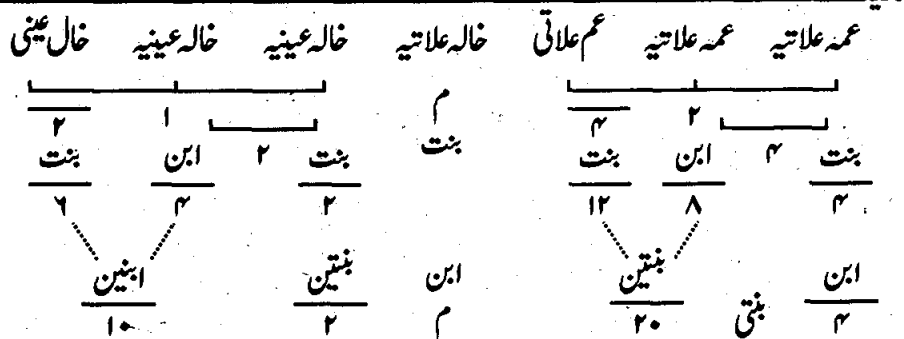 عمہ علاتیہ عمہ علاتیہ عم علاتی خالہ علاتیہ خالہ عینیہ خالہ عینیہ خال عینی
۲ ۴ م ۱ ۲
بنت ۴ ابن بنت بنت بنت ۲ ابن بنت
۴ ۸ ۱۲ ۲ ۴ ۶
ابن بنتی بنتین ابن بنتین ابنین
۴ ۲۰ م ۲ ۱۰